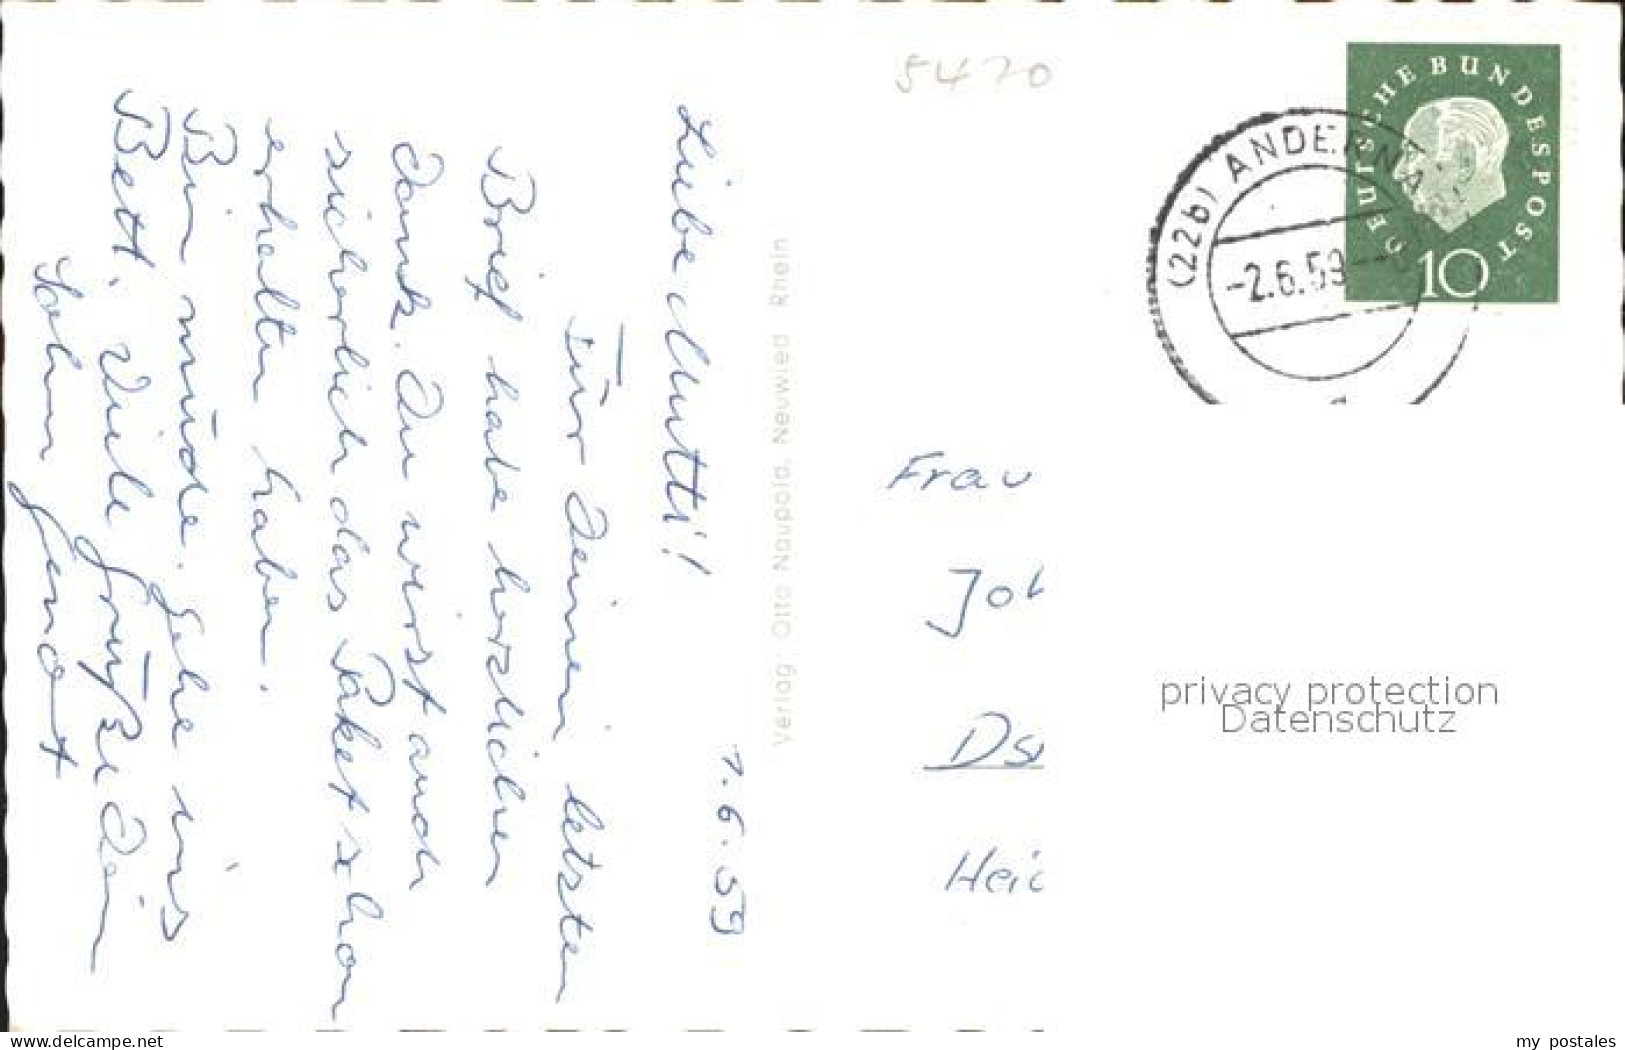 1.6.59
Liebe Mutti!
Für Deinen letzten
Brief habe herzlichen
Dank. Du wirst auch
sicherlich das Paket schon
erhalten haben.
Bin müde. Gehe ins
Bett. Viele Grüße Dein
Sohn
Verlag: Otto Naupold, Neuwied Rhein
5470
DEUTSCHE BUNDESPOST
10
(22b) ANDERNA
-2.6.59
Frau
Joh
Ds
Heid
privacy protection
Datenschutz
www.delcampe.net
my_postales